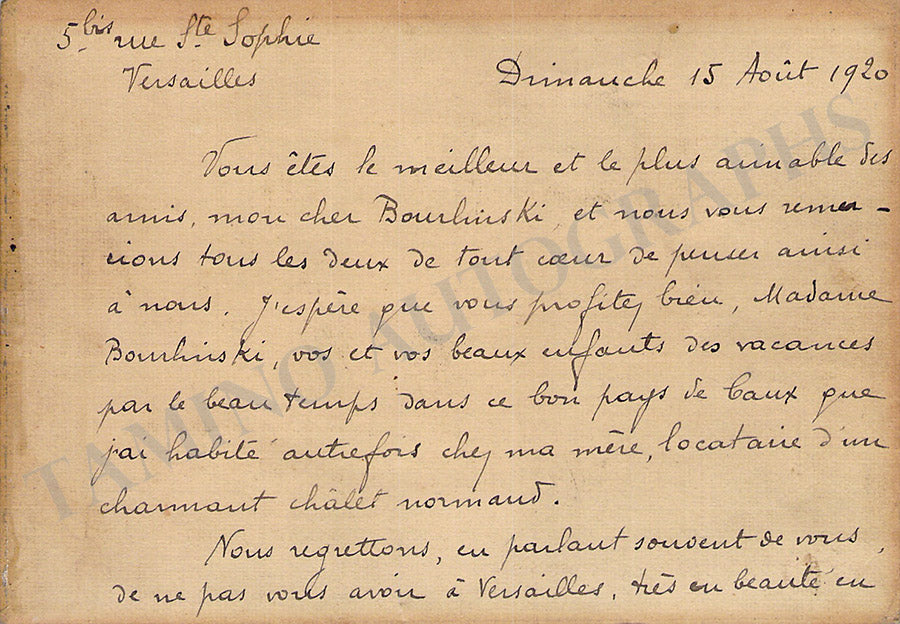 5.bis rue Ste Sophie
Versailles
Dimanche 15 Août 1920
Vous êtes le meilleur et le plus aimable des
amis, mon cher Bourlinski, et nous vous remer-
cions tous les deux de tout cœur de penser ainsi
à nous. J'espère que vous profitez bien, Madame
Bourlinski, vos et vos beaux enfants des vacances
par le beau temps dans ce bon pays de Caux que
j'ai habité autrefois chez ma mère, locataire d'un
charmant châlet normand.
Nous regrettons, en parlant souvent de vous,
de ne pas vous avoir à Versailles, très en beauté en
TAMINO AUTOGRAPHS